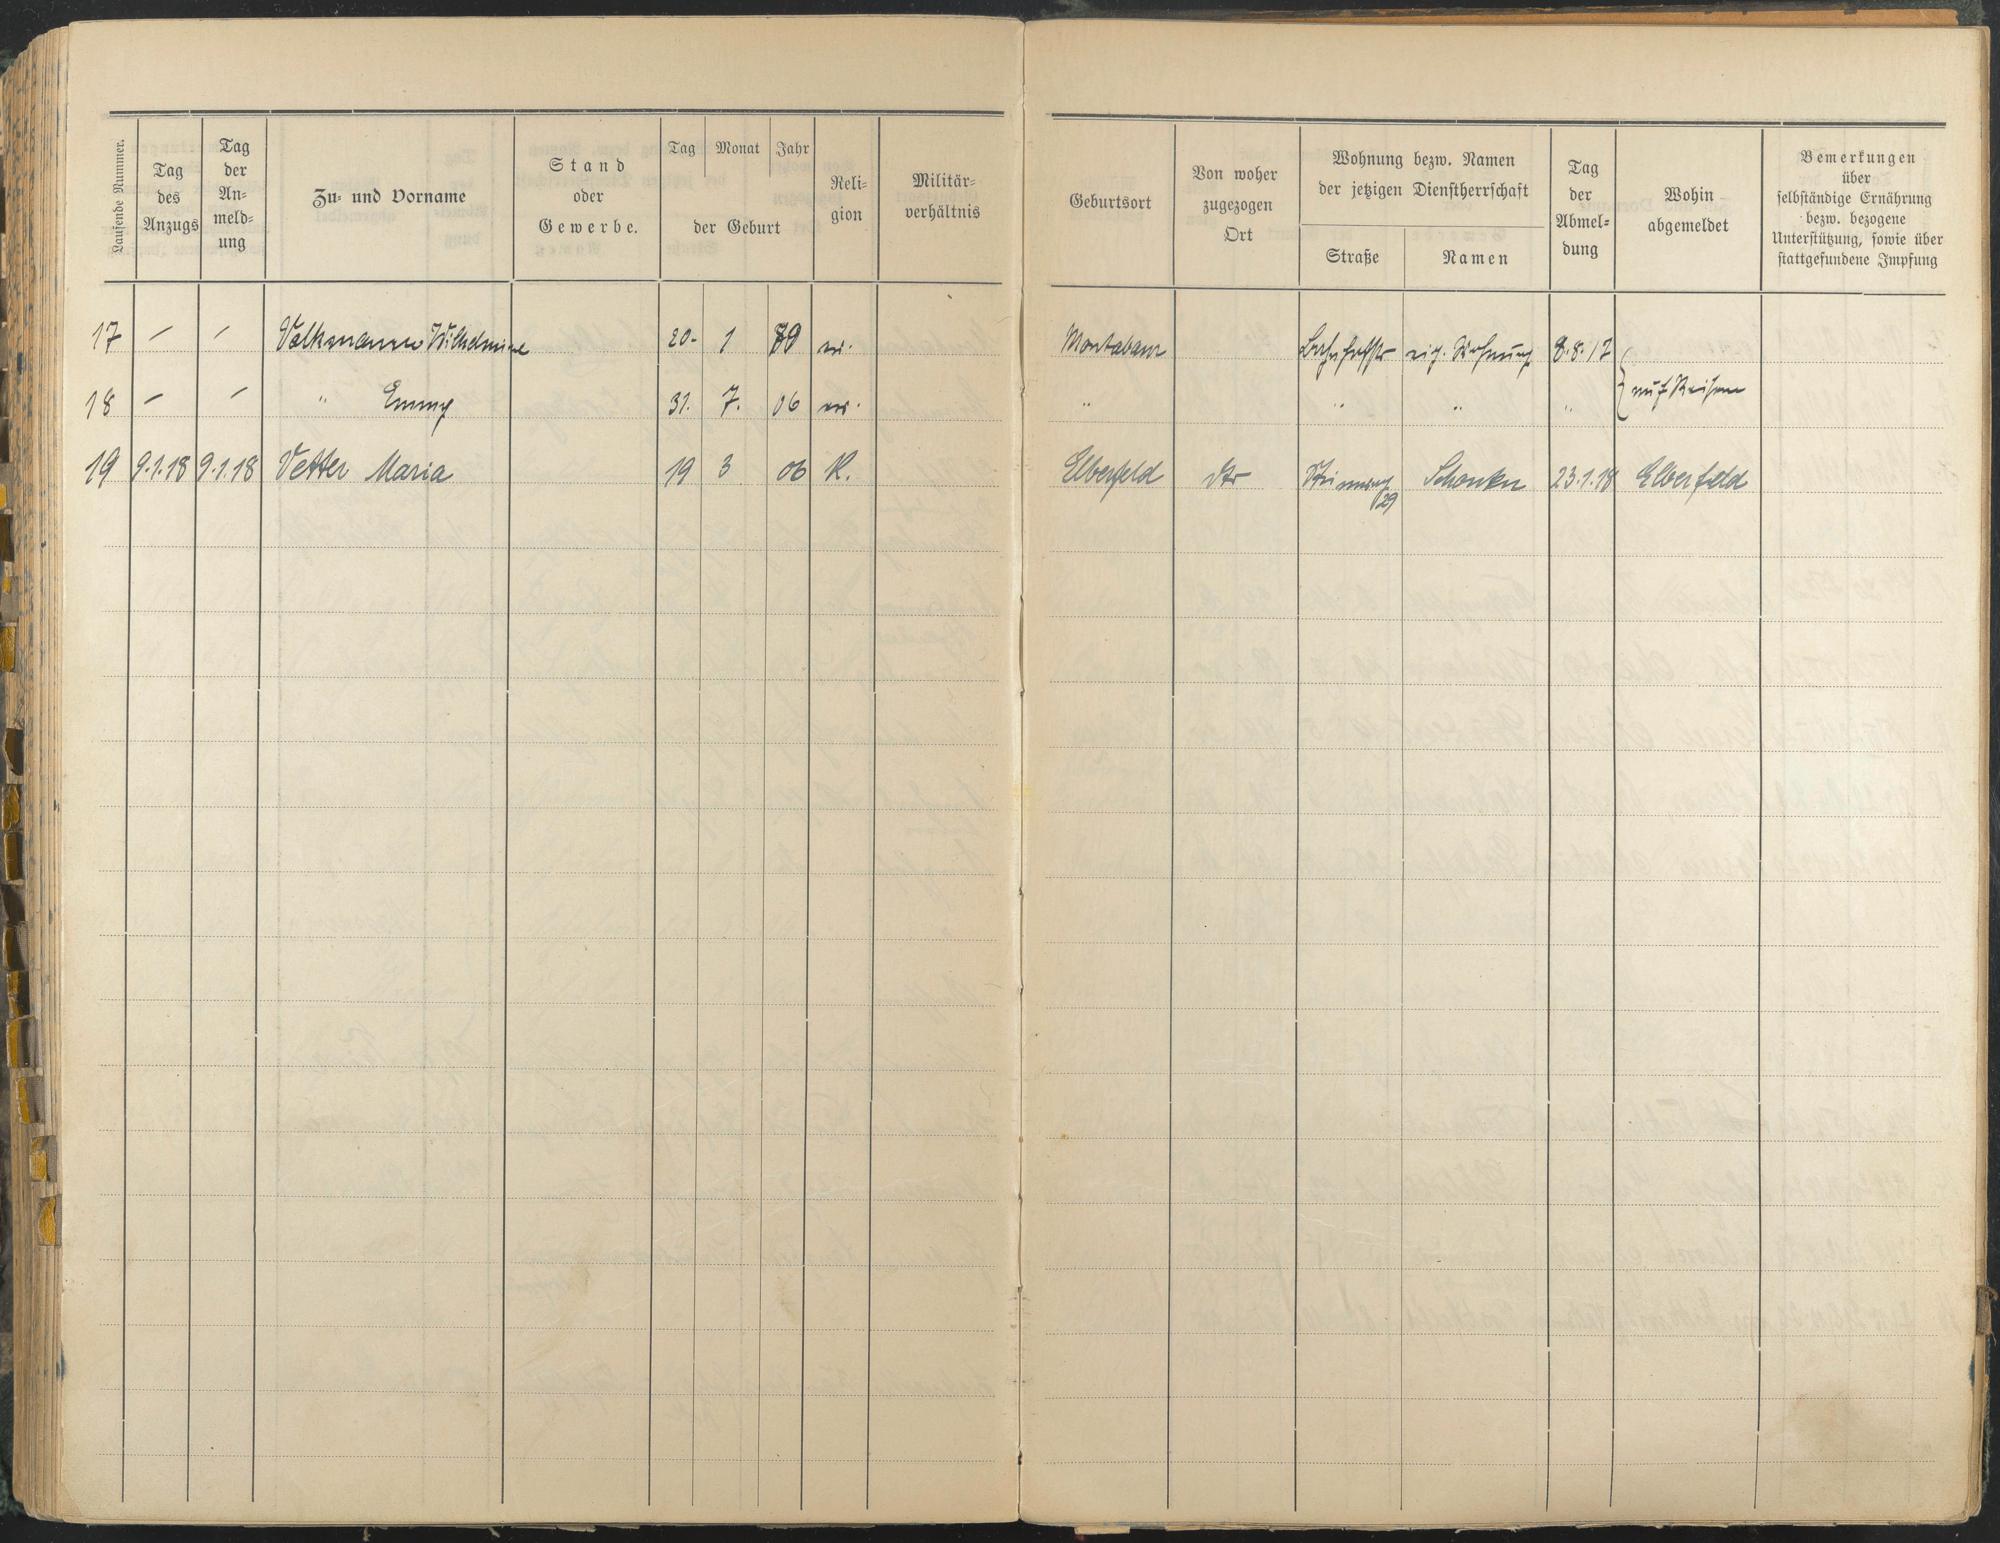 Laufende Nummer.
Tag des Anzugs
Tag der An- meld- ung
Zu- und Vorname
Stand oder Gewerbe.
Tag Monat Jahr
der Geburt
Reli- gion
Militär- verhältnis
Geburtsort
Von woher zugezogen Ort
Wohnung bezw. Namen der jetzigen Dienstherrschaft
Straße Namen
Tag der Abmel- dung
Wohin abgemeldet
Bemerkungen über selbständige Ernährung bezw. bezogene Unterstützung, sowie über stattgefundene Impfung
17 – – Volkmann Wilhelmine 20. 1 79 ev. Montabaur Bahnhofstr eig. Wohnung 8.8.17
18 – – " Emmy 31. 7. 06 ev. " " " " } auf Reisen
19 9.1.18 9.1.18 Vetter Maria 19 3 06 K. Elberfeld dto 29 Schenker 23.1.18 Elberfeld